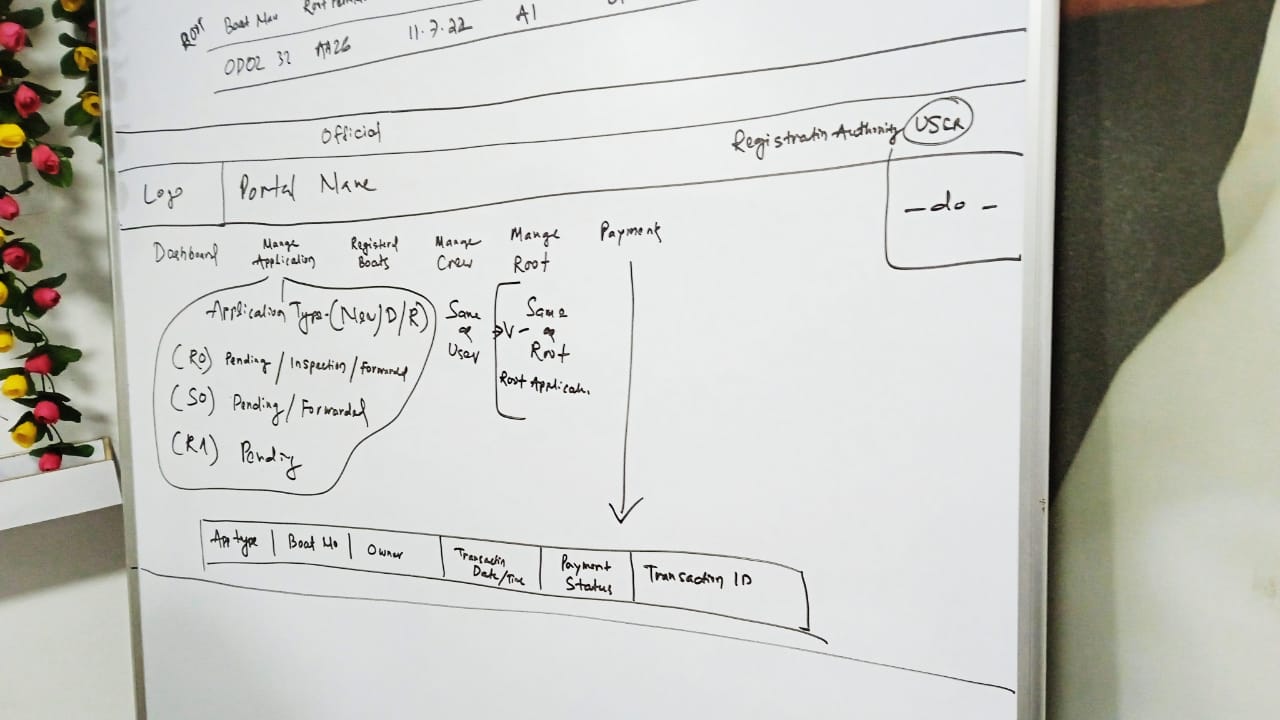 Root Boat No
ODO2 32 AA26 11.7.22 A1
Official
Registratin Authority USER
Logo Portal Name
- do -
Dashboard Mange Application Registerd Boats Mange Crew Mange Root Payment
Application Type - (New/D/R)
(RO) Pending / Inspection / Forwarded
(SO) Pending / Forwarded
(RA) Pending
Same
as
User
V - Same
as
Root
Root Applicatn.
App type | Boat No | Owner | Transactin Date/Time | Payment Status | Transaction ID